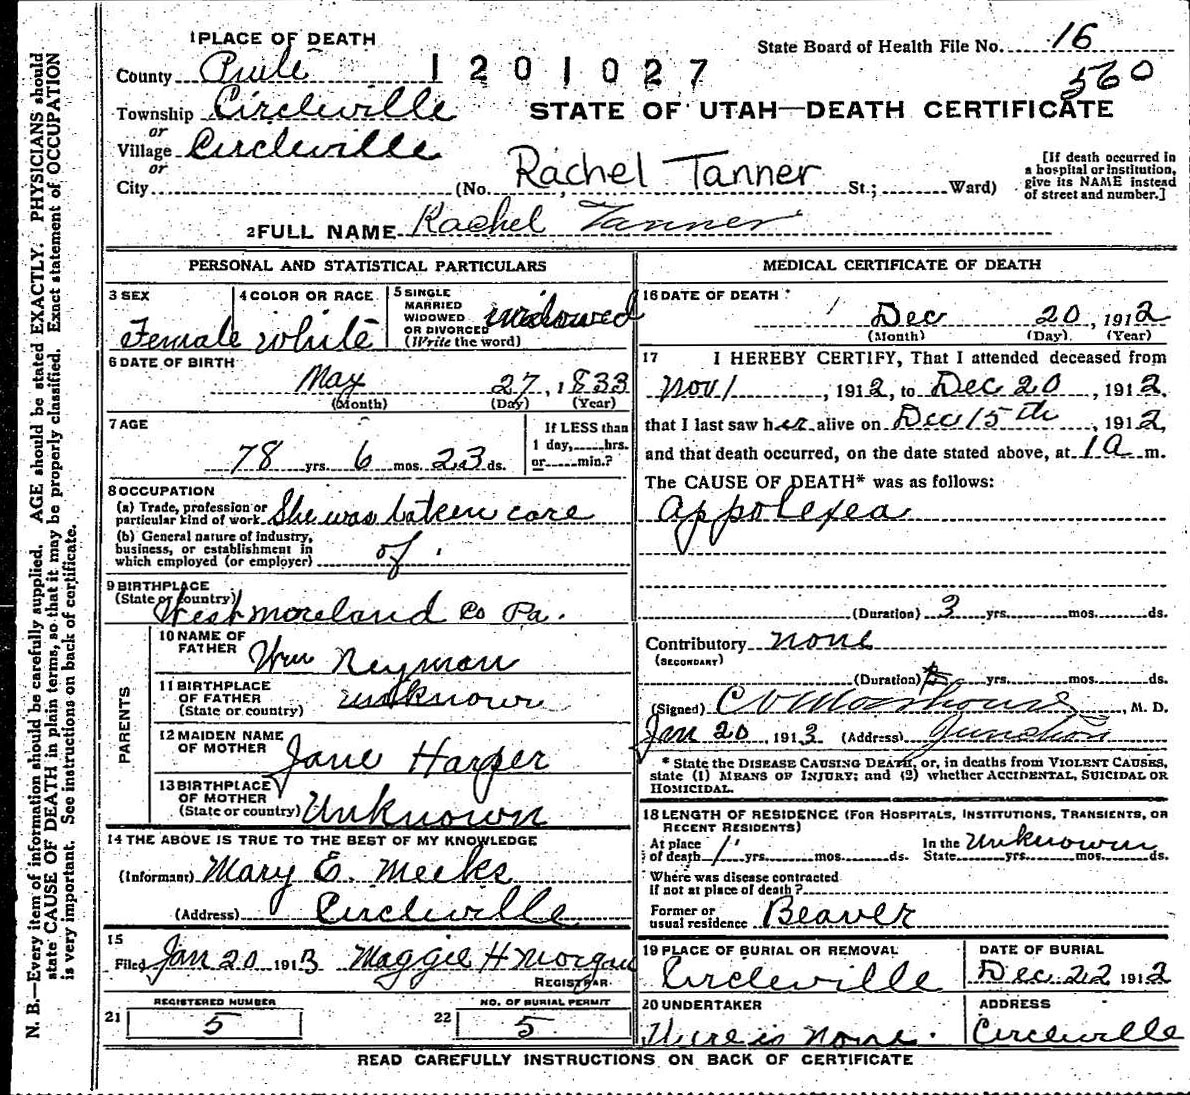 1 PLACE OF DEATH
State Board of Health File No. 16
County Piute 1201027
560
Township Circleville
STATE OF UTAH—DEATH CERTIFICATE
or
Village Circleville
or
City (No. Rachel Tanner St.; Ward)
[If death occurred in a hospital or institution, give its NAME instead of street and number.]
2 FULL NAME Rachel Tanner
PERSONAL AND STATISTICAL PARTICULARS
3 SEX Female
4 COLOR OR RACE white
5 SINGLE MARRIED WIDOWED OR DIVORCED (Write the word) widowed
6 DATE OF BIRTH
May 27, 1833
(Month) (Day) (Year)
7 AGE
78 yrs. 6 mos. 23 ds.
If LESS than 1 day, hrs. or min.?
8 OCCUPATION
(a) Trade, profession or particular kind of work She was taken care
(b) General nature of industry, business, or establishment in which employed (or employer) of.
9 BIRTHPLACE
(State or country) Westmoreland Co Pa.
PARENTS
10 NAME OF FATHER Wm Neyman
11 BIRTHPLACE OF FATHER (State or country) unknown
12 MAIDEN NAME OF MOTHER Jane Harper
13 BIRTHPLACE OF MOTHER (State or country) Unknown
14 THE ABOVE IS TRUE TO THE BEST OF MY KNOWLEDGE
(Informant) Mary E. Meeks
(Address) Circleville
15
Filed Jan 20 1913 Maggie H Morgan
REGISTRAR
REGISTERED NUMBER
21 5
NO. OF BURIAL PERMIT
22 5
MEDICAL CERTIFICATE OF DEATH
16 DATE OF DEATH
Dec 20, 1912
(Month) (Day) (Year)
17 I HEREBY CERTIFY, That I attended deceased from
Nov 1, 1912, to Dec 20, 1912,
that I last saw her alive on Dec 15th, 1912,
and that death occurred, on the date stated above, at 1 a m.
The CAUSE OF DEATH* was as follows:
Appolexea
(Duration) 3 yrs. mos. ds.
Contributory none
(SECONDARY)
(Duration) yrs. mos. ds.
(Signed) , M. D.
Jan 20, 1913 (Address) Junction
* State the DISEASE CAUSING DEATH, or, in deaths from VIOLENT CAUSES, state (1) MEANS OF INJURY; and (2) whether ACCIDENTAL, SUICIDAL OR HOMICIDAL.
18 LENGTH OF RESIDENCE (FOR HOSPITALS, INSTITUTIONS, TRANSIENTS, OR RECENT RESIDENTS)
At place of death 1 yrs. mos. ds. In the State Unknown yrs. mos. ds.
Where was disease contracted if not at place of death?
Former or usual residence Beaver
19 PLACE OF BURIAL OR REMOVAL
Circleville
DATE OF BURIAL
Dec 22 1912
20 UNDERTAKER
There is none.
ADDRESS
Circleville
READ CAREFULLY INSTRUCTIONS ON BACK OF CERTIFICATE
N. B.—Every item of information should be carefully supplied. AGE should be stated EXACTLY. PHYSICIANS should
state CAUSE OF DEATH in plain terms, so that it may be properly classified. Exact statement of OCCUPATION
is very important. See instructions on back of certificate.